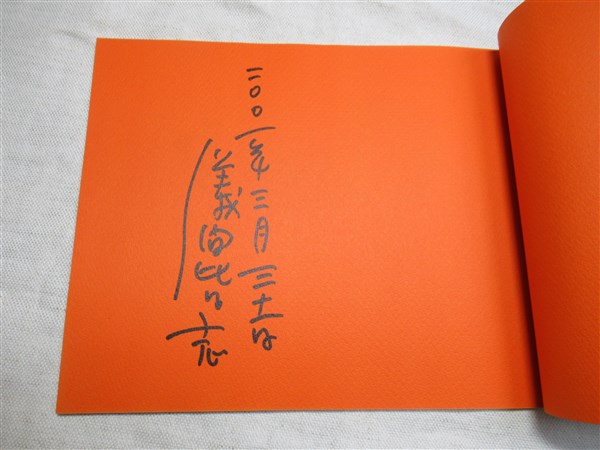 二〇〇一年三月三十一日
儀間比呂志